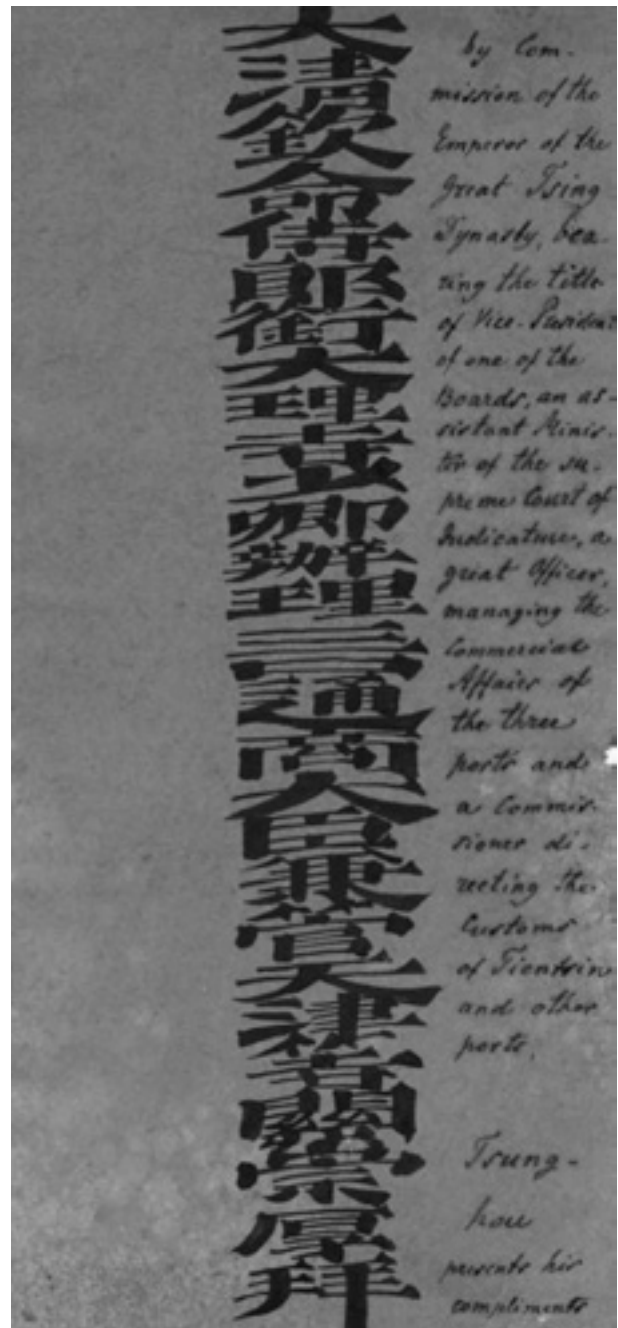 大清欽命侍郎銜大理寺卿辦理三口通商大臣兼管天津關崇厚拜
by Com-
mission of the
Emperor of the
great Tsing
Dynasty, bea-
ring the title
of Vice-President
of one of the
Boards, an as-
sistant Minis-
ter of the su-
preme Court of
Judicature, a
great Officer,
managing the
Commercial
Affairs of
the three
ports and
a Commis-
sioner di-
recting the
Customs
of Tientsin
and other
ports,
Tsung-
how
presents his
compliments